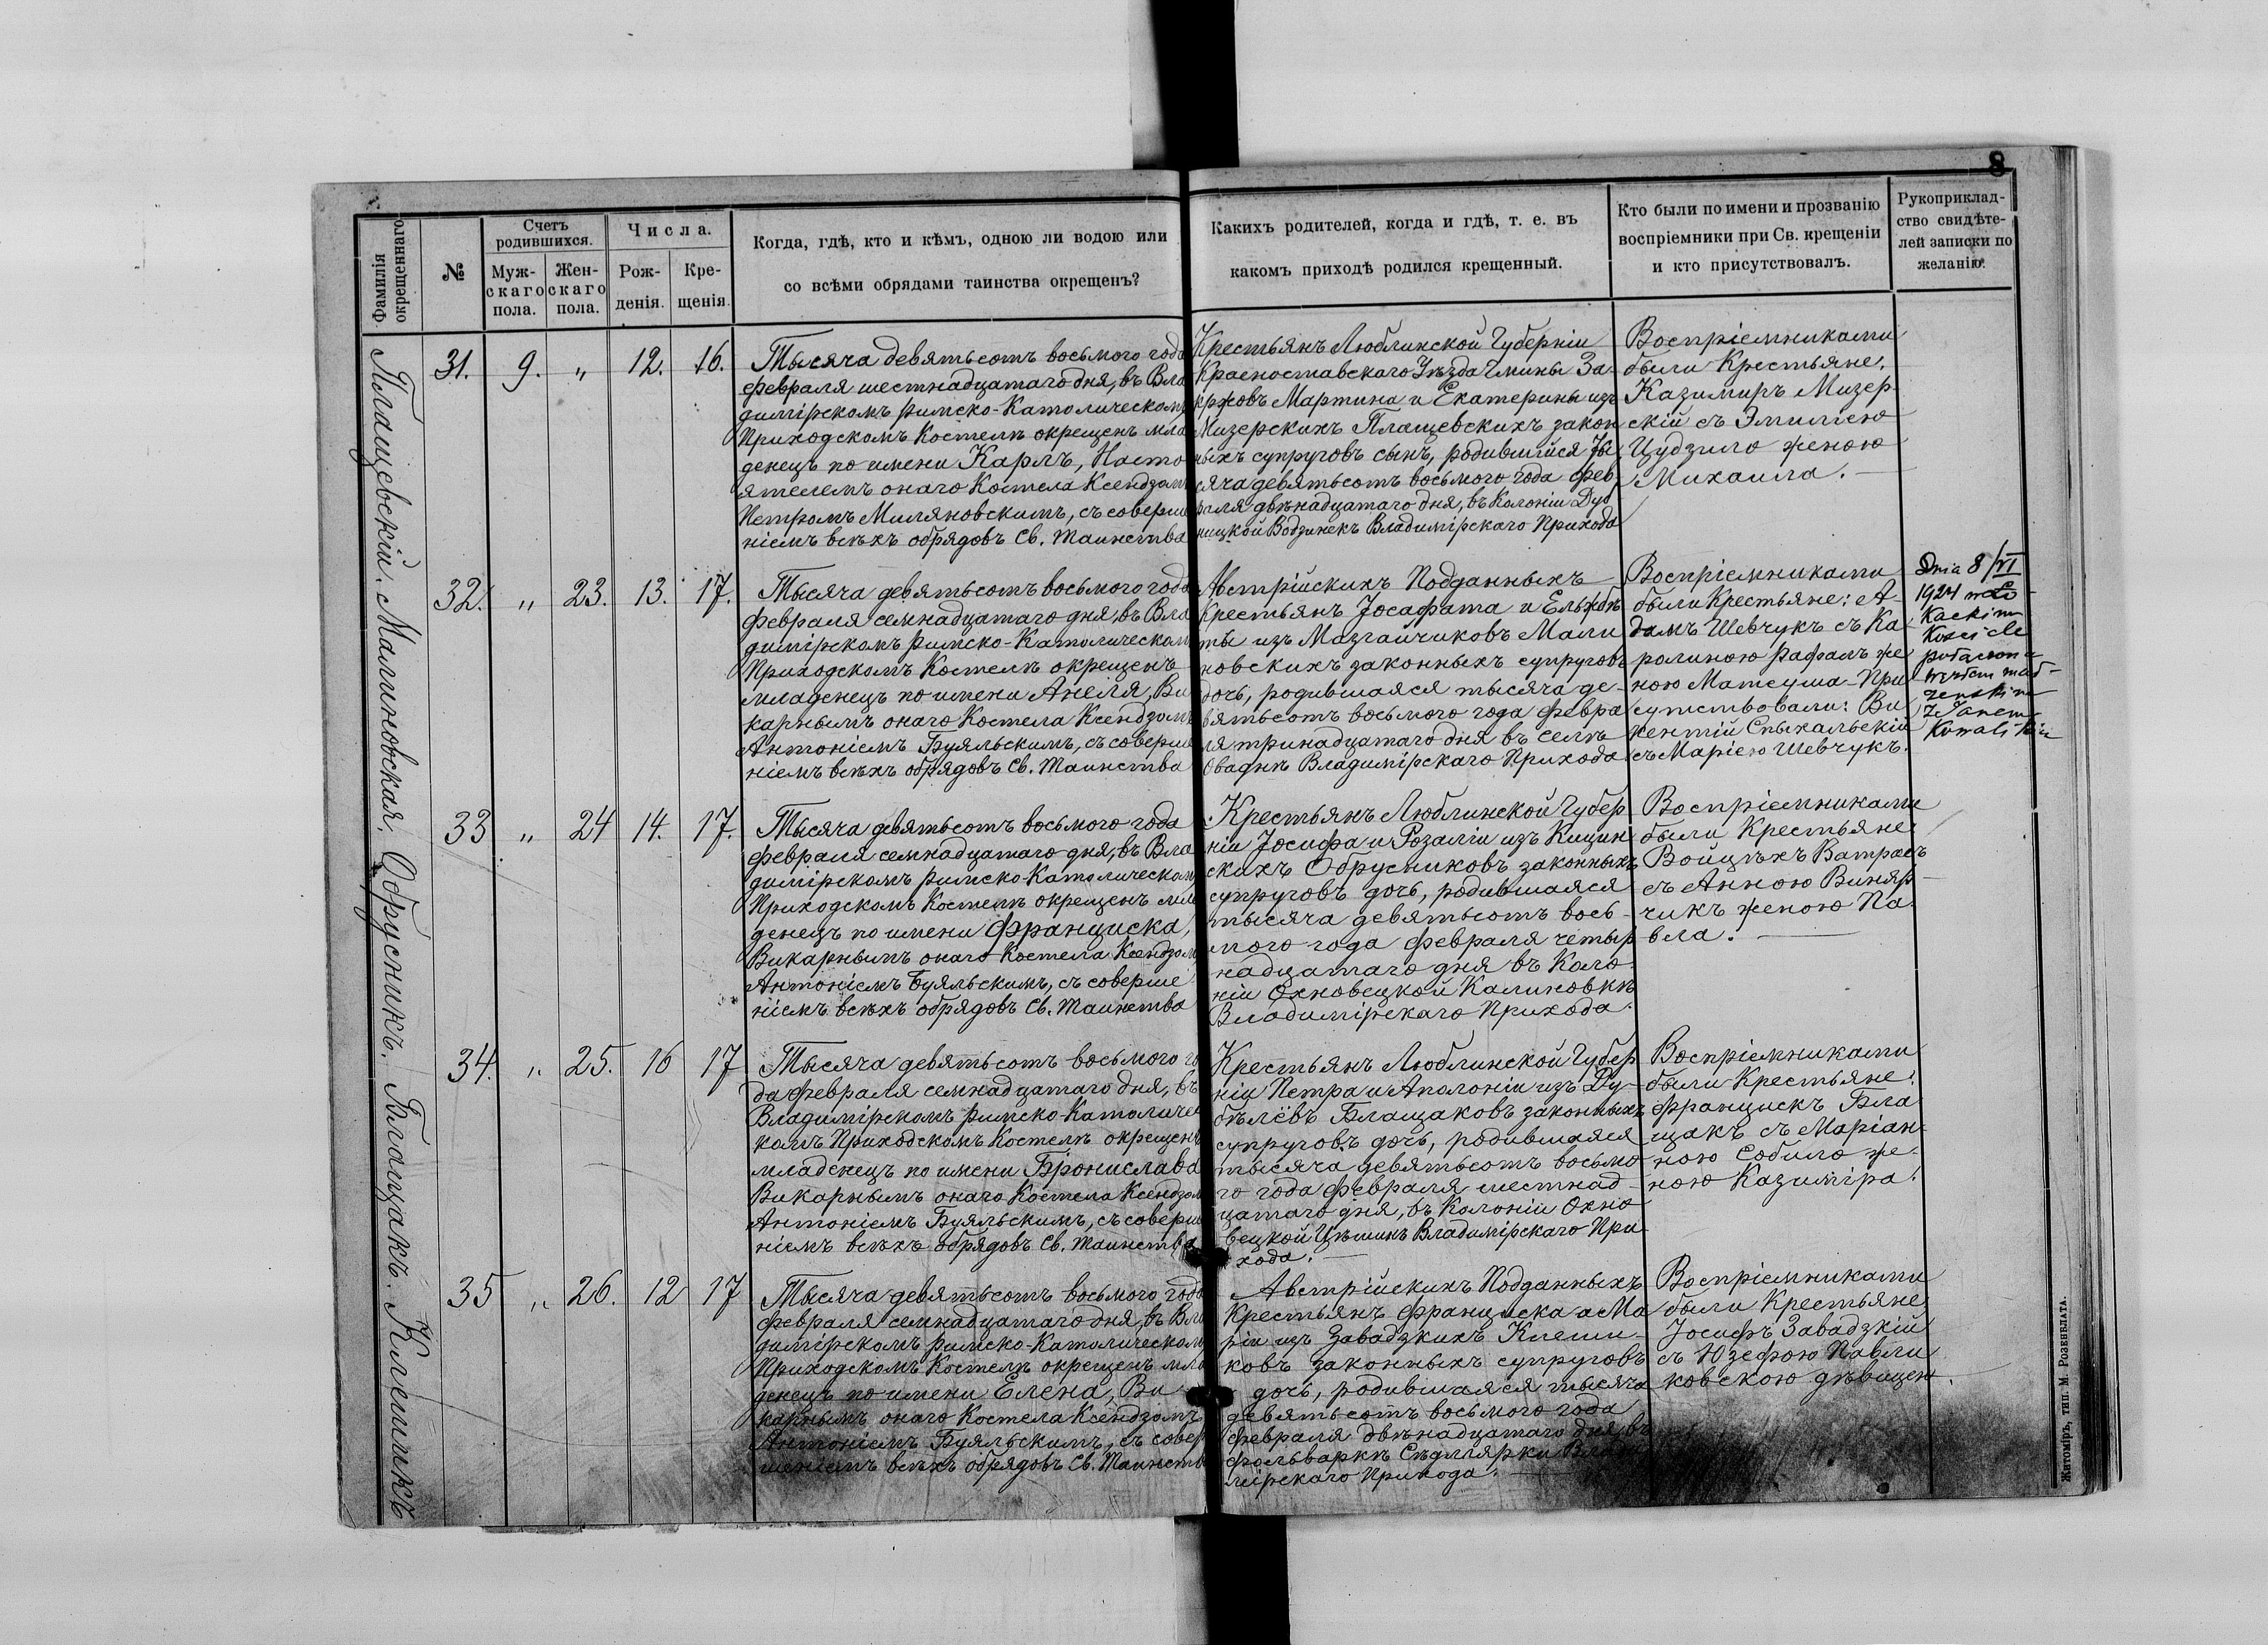 8
Фамилія
окрещеннаго
№
Счетъ
родившихся.
Муж-
скаго
пола.
Жен-
скаго
пола.
Числа.
Рож-
денія.
Кре-
щенія.
Когда, гдѣ, кто и кѣмъ, одною ли водою или
со всѣми обрядами таинства окрещенъ?
Какихъ родителей, когда и гдѣ, т. е. въ
какомъ приходѣ родился крещенный.
Кто были по имени и прозванію
воспріемники при Св. крещеніи
и кто присутствовалъ.
Рукоприклад-
ство свидѣте-
лей записки по
желанію.
Плащевскій.
31. 9. „ 12. 16.
Тысяча девятьсотъ восьмого года
февраля шестнадцатаго дня, въ Вла
димірскомъ Римско-Католическомъ
Приходскомъ Костелѣ окрещенъ мла
денецъ по имени Карлъ, Насто
ятелемъ онаго Костела Ксендзомъ
Петромъ Миляновскимъ, съ соверше
ніемъ всѣхъ обрядовъ Св. Таинства
Крестьянъ Люблинской Губерніи
Красноставскаго Уѣзда Гмины За-
кржовъ Мартина и Екатерины изъ
Мизерскихъ Плащевскихъ закон
ныхъ супруговъ сынъ, родившійся Ты
сяча девятьсотъ восьмого года фев
раля двѣнадцатаго дня, въ Колоніи Дуб
ницкой Водзинекъ Владимірскаго Прихода
Воспріемниками
были Крестьяне.
Казимиръ Мизер-
скій съ Эмиліею
Цудзило женою
Михаила.
Малиновская.
32. „ 23. 13. 17.
Тысяча девятьсотъ восьмого года
февраля семнадцатаго дня, въ Вла
димірскомъ Римско-Католическомъ
Приходскомъ Костелѣ окрещенъ
младенецъ по имени Анеля, Ви
карнымъ онаго Костела Ксендзомъ
Антоніемъ Буяльскимъ, съ соверше
ніемъ всѣхъ обрядовъ Св. Таинства
Австрійскихъ Подданныхъ
Крестьянъ Іосафата и Ельжбѣ
ты изъ Мазгайчиковъ Мали
новскихъ законныхъ супруговъ
дочь, родившаяся тысяча де-
вятьсотъ восьмого года февра
ля тринадцатаго дня въ селѣ
Оваднѣ Владимірскаго Прихода
Воспріемниками
были Крестьяне: А-
дамъ Шевчукъ съ Ка
ролиною Рафалъ же
ною Матеуша - При
сутствовали: Ви
кентій Спыхальскій
съ Маріею Шевчукъ.
Dnia 8/VI
1924 w Ło-
kackim
Kościele
Janem
Обрусникъ.
33 „ 24 14. 17.
Тысяча девятьсотъ восьмого года
февраля семнадцатаго дня, въ Вла
димірскомъ Римско-Католическомъ
Приходскомъ Костелѣ окрещенъ мла
денецъ по имени Франциска,
Викарнымъ онаго Костела Ксендзомъ
Антоніемъ Буяльскимъ, съ соверше
ніемъ всѣхъ обрядовъ Св. Таинства
Крестьянъ Люблинской Губер
ніи Іосифа и Розаліи изъ Кицин
скихъ Обрусниковъ законныхъ
супруговъ дочь, родившаяся
тысяча девятьсотъ вось-
мого года февраля четыр
надцатаго дня въ Коло
ніи Охновецкой Калиновкѣ
Владимірскаго Прихода.
Воспріемниками
были Крестьяне:
Войцѣхъ Ватрасъ
съ Анною Виняр-
чикъ женою Па-
вла.
Блащакъ.
34. „ 25. 16 17
Тысяча девятьсотъ восьмого го
да февраля семнадцатаго дня, въ
Владимірскомъ Римско-Католичес
комъ Приходскомъ Костелѣ окрещенъ
младенецъ по имени Брониславa
Викарнымъ онаго Костела Ксендзом
Антоніемъ Буяльскимъ, съ соверше
ніемъ всѣхъ обрядовъ Св. Таинства
Крестьянъ Люблинской Губер
ніи Петра и Аполоніи изъ Ду-
бѣлёвъ Блащаковъ законныхъ
супруговъ дочь, родившаяся
тысяча девятьсотъ восьмо
го года февраля шестнад-
цатаго дня, въ Колоніи Охно
вецкой Цѣшинъ Владимірскаго При
хода.
Воспріемниками
были Крестьяне:
Францискъ Бла
щакъ съ Маріан-
ною Собило же-
ною Казиміра.
Клешникъ
35 „ 26. 12 17
Тысяча девятьсотъ восьмого года
февраля семнадцатаго дня, въ Вла
димірскомъ Римско-Католическомъ
Приходскомъ Костелѣ окрещенъ мла
денецъ по имени Елена, Ви
карнымъ онаго Костела Ксендзомъ
Антоніемъ Буяльскимъ, съ совер
шеніемъ всѣхъ обрядовъ Св. Таинств
Австрійскихъ Подданныхъ
Крестьянъ Франциска а Ма
ріи изъ Завадзкихъ Клешни-
ковъ законныхъ супруговъ
дочь, родившаяся тысяча
девятьсотъ восьмого года
февраля двѣнадцатаго дня, въ
фольваркѣ Сѣдлярки Влади
мірскаго Прихода.
Воспріемниками
были Крестьяне,
Іосифъ Завадзкій
съ Юзефою Павли
ковскою дѣвицею.
Житоміръ, тип. М. Розенблата.